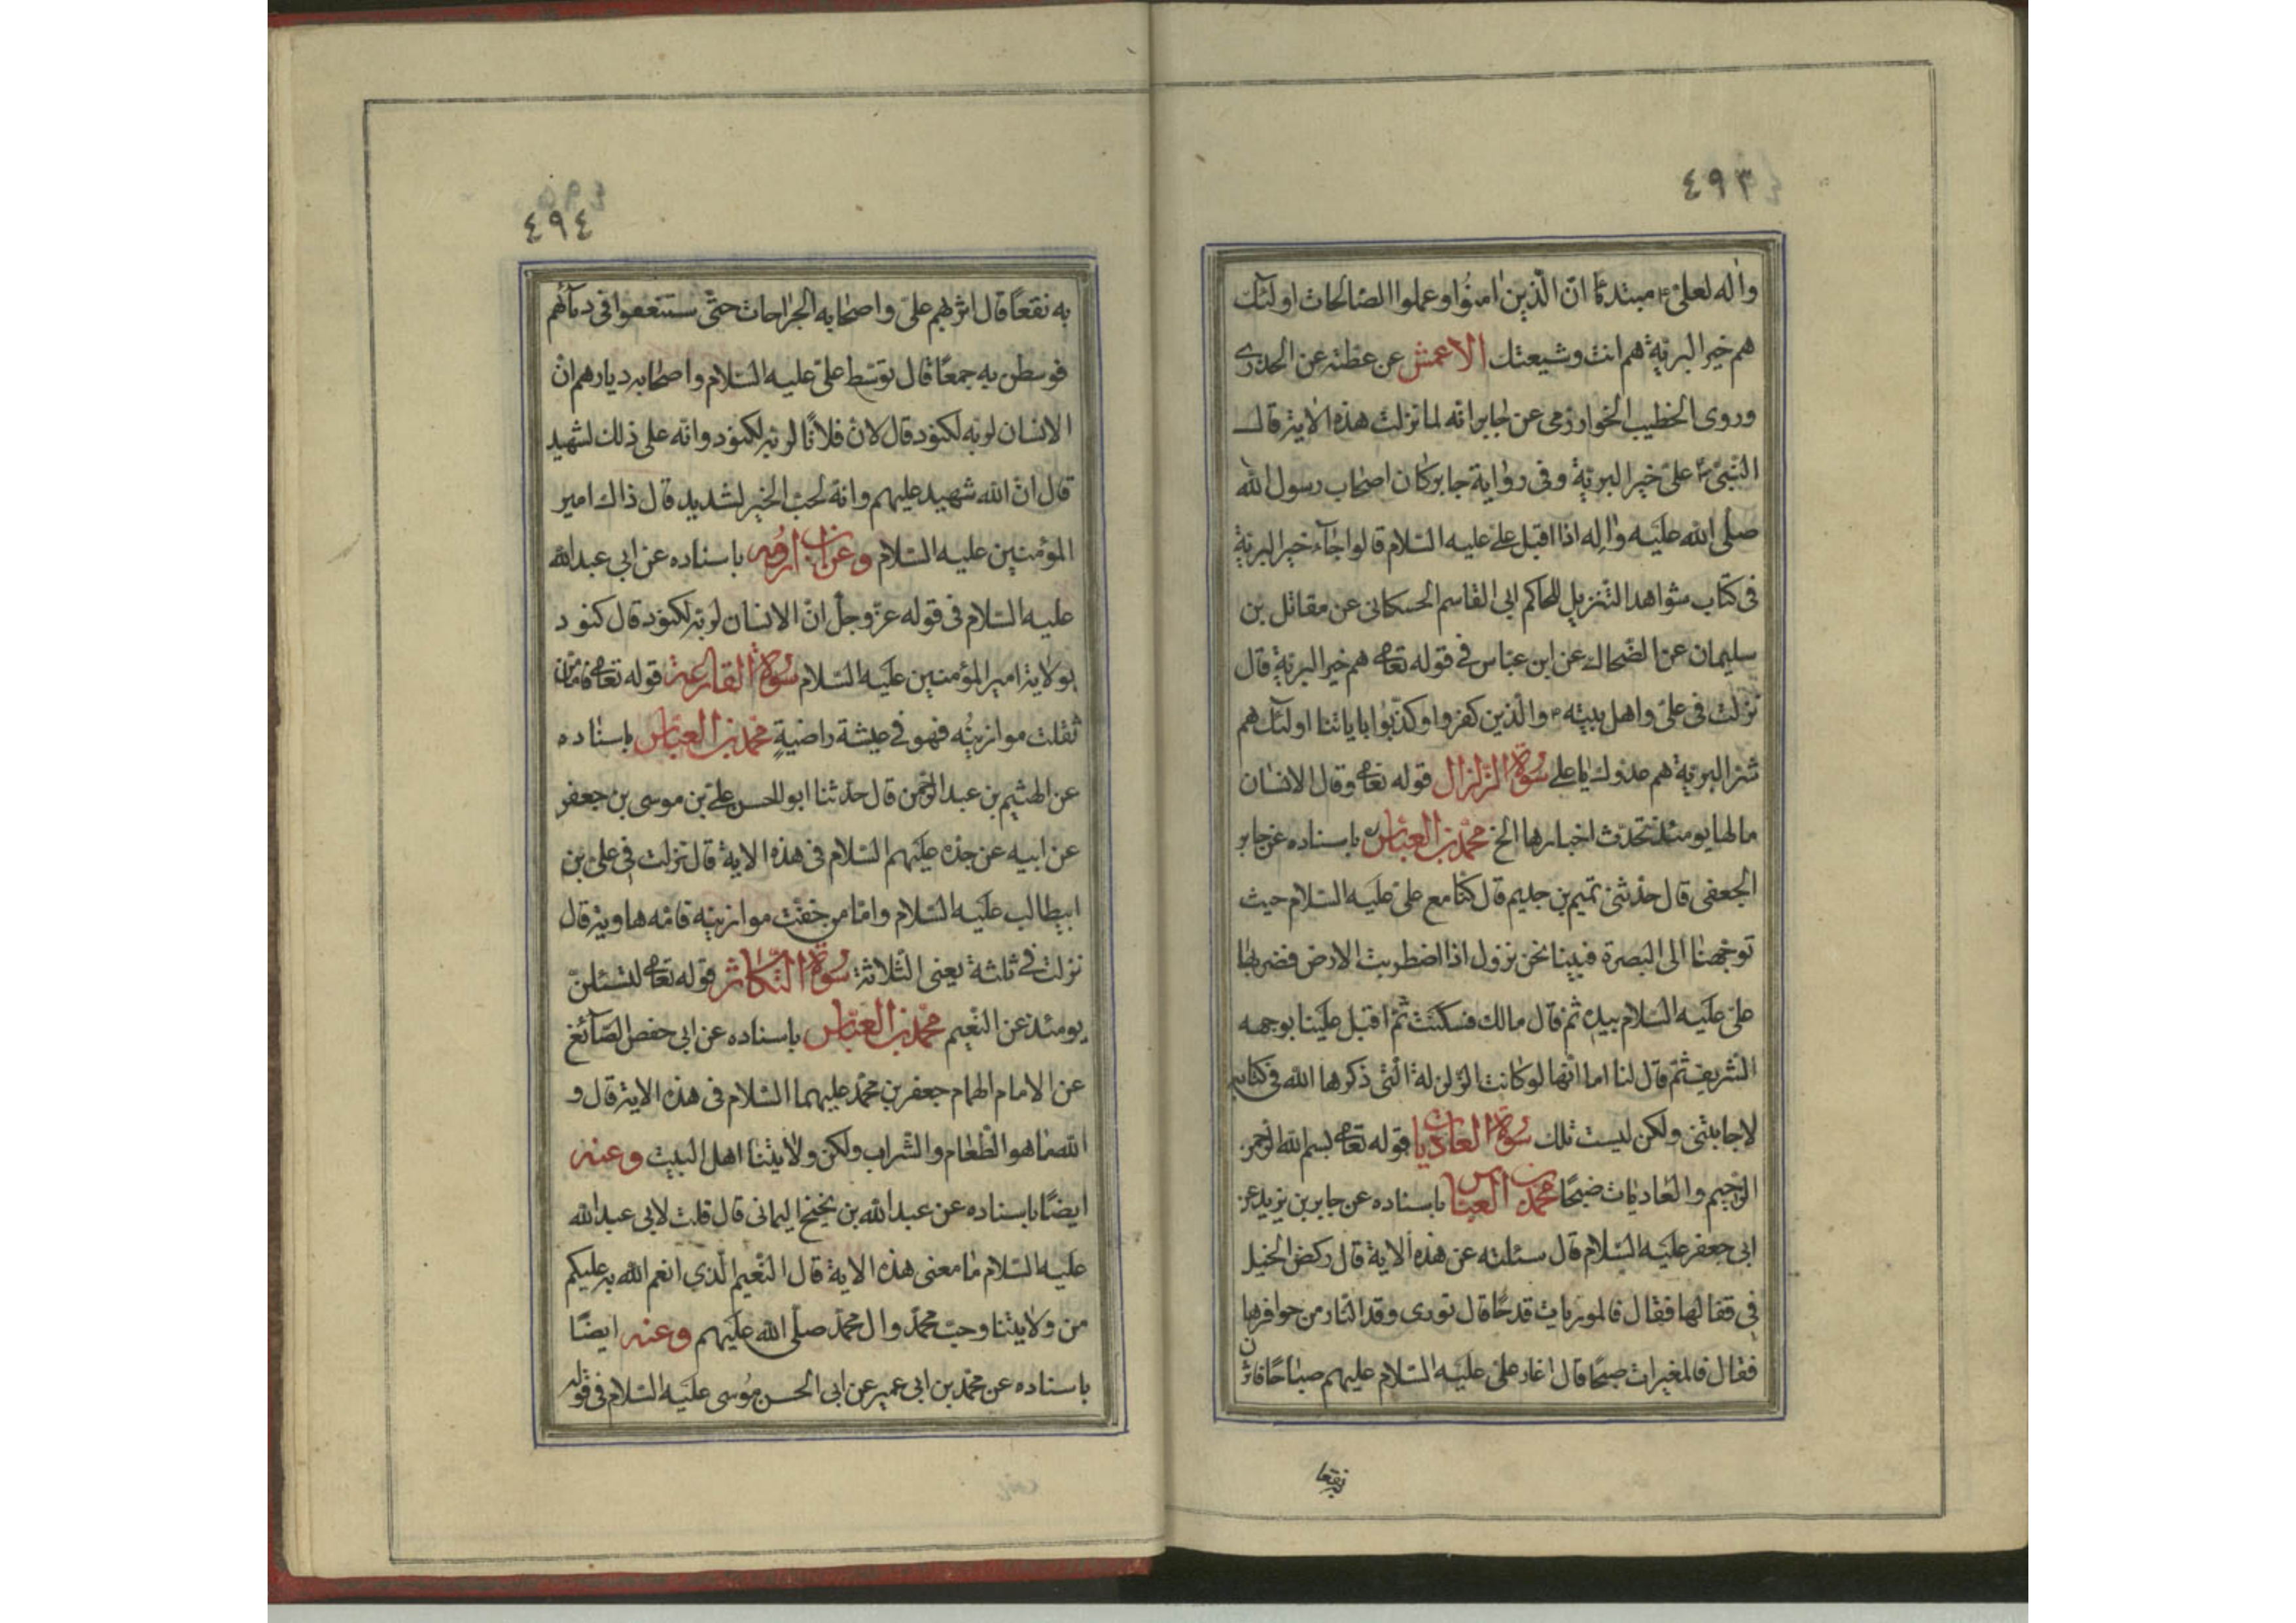 ٤٩٣
واله لعلىّ ع مبتدئا انّ الّذين امنُوا وعملوا الصّالحات اولئك
هم خير البريّة هم انت وشيعتك الاعمش عن عطيّة عن الخدرى
وروى الخطيب الخوارزمى عن جابر انّه لما نزلت هذه الاية قال
النّبىّ ص علىّ خير البريّة وفى رواية جابر كان اصحاب رسول الله
صلّى الله عليه واله اذا اقبل علىّ عليه السّلام قالوا جاء خير البريّة
فى كتاب شواهد التنزيل للحاكم ابى القاسم الحسكانى عن مقاتل بن
سليمان عن الضّحاك عن ابن عبّاس فى قوله تعالى هم خير البريّة قال
نزلت فى علىّ واهل بيته ع والّذين كفروا وكذّبوا باياتنا اولئك هم
شرّ البريّة هم عدوك يا على سورة الزلزال قوله تعالى وقال الانسان
مالها يومئذ تحدّث اخبارها الخ محمّد بن العبّاس باسناده عن جابر
الجعفى قال حدّثنى تميم بن جذيم قال كنّا مع علىّ عليه السّلام حيث
توجّهنا الى البصرة فبينا نحن نزول اذا اضطربت الارض فضربها
علىّ عليه السّلام بيده ثمّ قال مالك فسكنت ثمّ اقبل علينا بوجهه
الشّريف ثمّ قال لنا اما انّها لو كانت الزّلزلة الّتى ذكرها الله فى كتابه
لاجابتنى ولكن ليست تلك سورة العاديات قوله تعالى بسم الله الرّحمن
الرّحيم والعاديات ضبحًا محمّد بن العبّاس باسناده عن جابر بن يزيد عن
ابى جعفر عليه السّلام قال سئلته عن هذه الاية قال ركض الخيل
فى قفالها فقال فالموريات قدحًا قال تورى وقد النّار من حوافرها
فقال فالمغيرات صبحًا قال اغار علىّ عليه السّلام عليهم صباحًا فاثرن
به نقعا
٤٩٤
به نقعًا قال اثر بهم علىّ واصحابه الجراحات حتّى ستنقعوا فى دمائهم
فوسطن به جمعًا قال توسّط علىّ عليه السّلام واصحابه ديارهم انّ
الانسان لربّه لكنود قال لان فلانًا لربّه لكنود وانّه على ذلك لشهيد
قال انّ الله شهيد عليهم وانّه لحبّ الخير لشديد قال ذاك امير
المؤمنين عليه السّلام وعن ابن اورمه باسناده عن ابى عبد الله
عليه السّلام فى قوله عزّ وجلّ انّ الانسان لربّه لكنود قال كنود
بولاية امير المؤمنين عليه السّلام سورة القارعة قوله تعالى فامّا من
ثقلت موازينُه فهو فى عيشة راضيةٍ محمّد بن العبّاس باسناده
عن الهثيم بن عبد الرّحمن قال حدّثنا ابو الحسن علىّ بن موسى بن جعفر
عن ابيه عن جدّه عليهم السّلام فى هذه الاية قال نزلت فى علىّ بن
ابيطالب عليه السّلام وامّا من خفّت موازينه فامّه هاوية قال
نزلت فى ثلثة يعنى الثّلاثة سورة التّكاثر قوله تعالى لتسئلنّ
يومئذ عن النّعيم محمّد بن العبّاس باسناده عن ابى حفص الصّائغ
عن الامام الهمام جعفر بن محمّد عليهما السّلام فى هذه الاية قال و
الله ما هو الطّعام والشّراب ولكن ولايتنا اهل البيت وعنه
ايضًا باسناده عن عبد الله بن نجيح اليمانى قال قلت لابى عبد الله
عليه السّلام ما معنى هذه الاية قال النّعيم الّذى انعم الله به عليكم
من ولايتنا وحبّ محمّد وال محمّد صلّى الله عليهم وعنه ايضًا
باسناده عن محمّد بن ابى عمير عن ابى الحسن موسى عليه السّلام فى قوله